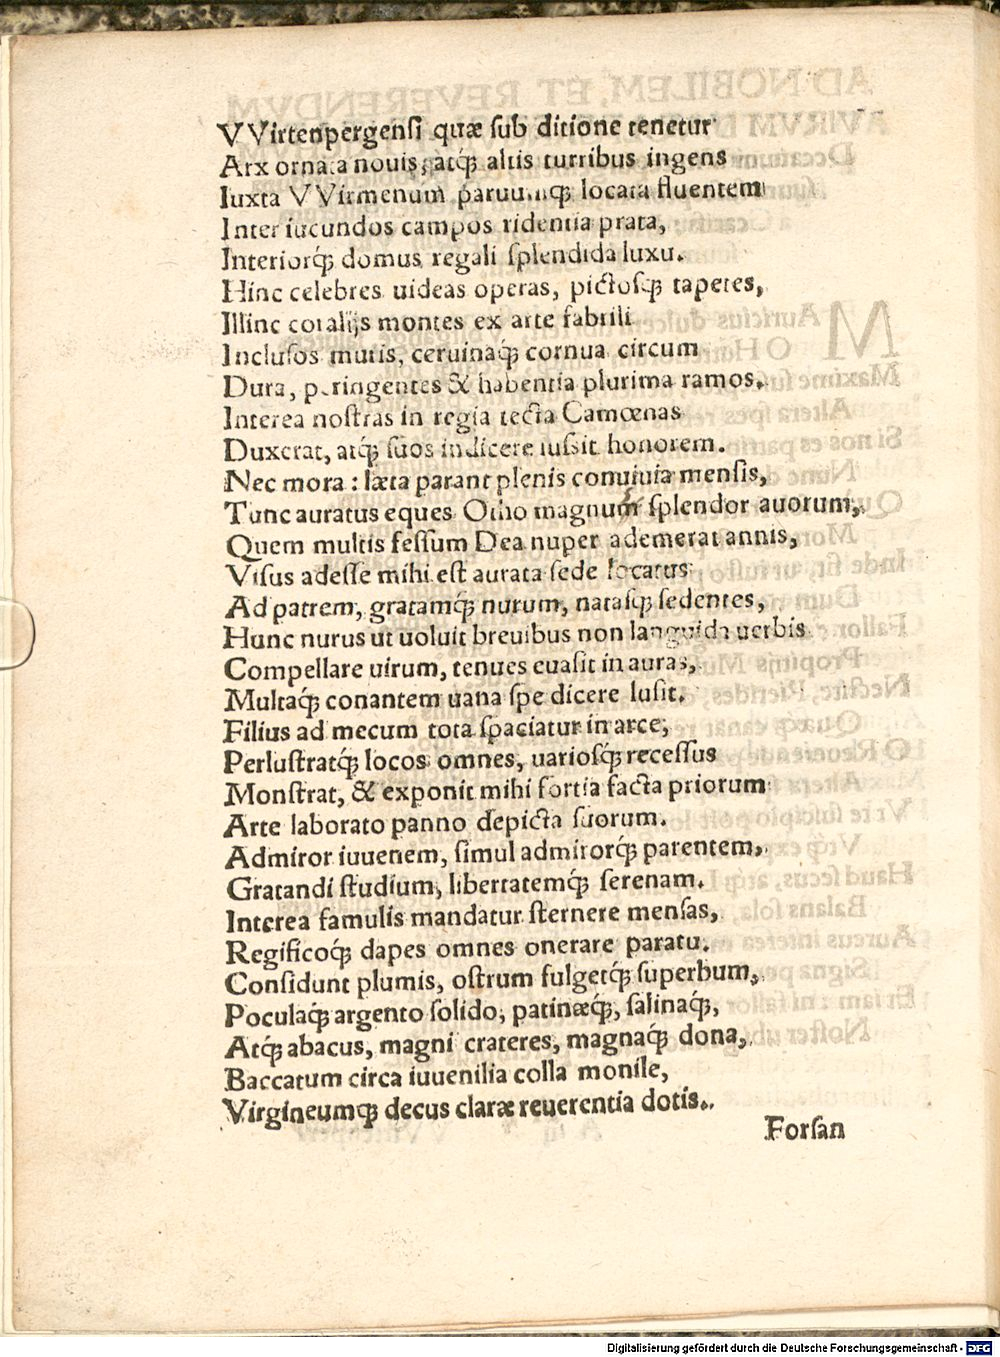 VVirtenpergensi quæ sub ditione tenetur
Arx ornata nouis, atq́; altis turribus ingens
Iuxta VVirmenum paruumq; locata fluentem
Inter iucundos campos ridentia prata,
Interiorq́; domus regali splendida luxu.
Hinc celebres uideas operas, pictosq; tapetes,
Illinc coralijs montes ex arte fabrili
Inclusos muris, ceruinaq́; cornua circum
Dura, p.ringentes & habentia plurima ramos.
Interea nostras in regia tecta Camœnas
Duxerat, atq́; suos indicere iussit honorem.
Nec mora: læta parant plenis conuiuia mensis,
Tunc auratus eques Otho magnum splendor auorum,
Quem multis fessum Dea nuper ademerat annis,
Visus adesse mihi est aurata sede locatus
Ad patrem, gratamq́; nurum, natasq; sedentes,
Hunc nurus ut uoluit breuibus non languida uerbis
Compellare uirum, tenues euasit in auras,
Multaq́; conantem uana spe dicere lusit.
Filius ad mecum tota spaciatur in arce,
Perlustratq́; locos omnes, uariosq́; recessus
Monstrat, & exponit mihi fortia facta priorum
Arte laborato panno depicta suorum.
Admiror iuuenem, simul admirorq́; parentem,
Gratandi studium, libertatemq́; serenam.
Interea famulis mandatur sternere mensas,
Regificoq́; dapes omnes onerare paratu.
Considunt plumis, ostrum fulgetq́; superbum,
Poculaq́; argento solido, patinæq́;, salinaq́;,
Atq́; abacus, magni crateres, magnaq́; dona,
Baccatum circa iuuenilia colla monile,
Virgineumq; decus claræ reuerentia dotis.
Forsan
Digitalisierung gefördert durch die Deutsche Forschungsgemeinschaft - DFG